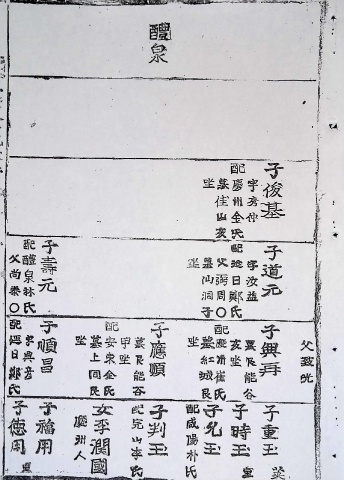 醴泉
子俊基
字秀仲
配慶州金氏
墓佳山亥
坐
子道元
字汝益
配迎日鄭氏
父詞周〇
墓仙洞子
坐
子壽元
配醴泉林氏
父尚泰〇
父致光
子興再
墓艮能谷
亥坐
配慶州崔氏
墓紅城艮
坐
子應顯
墓艮能谷
甲坐
配安東金氏
墓上同艮
坐
子順昌
字興彦
配迎日鄭氏
子重玉
子時玉
子允玉
配咸陽朴氏
子判玉
配完山李氏
女李潤國
廣州人
子福用
子德用